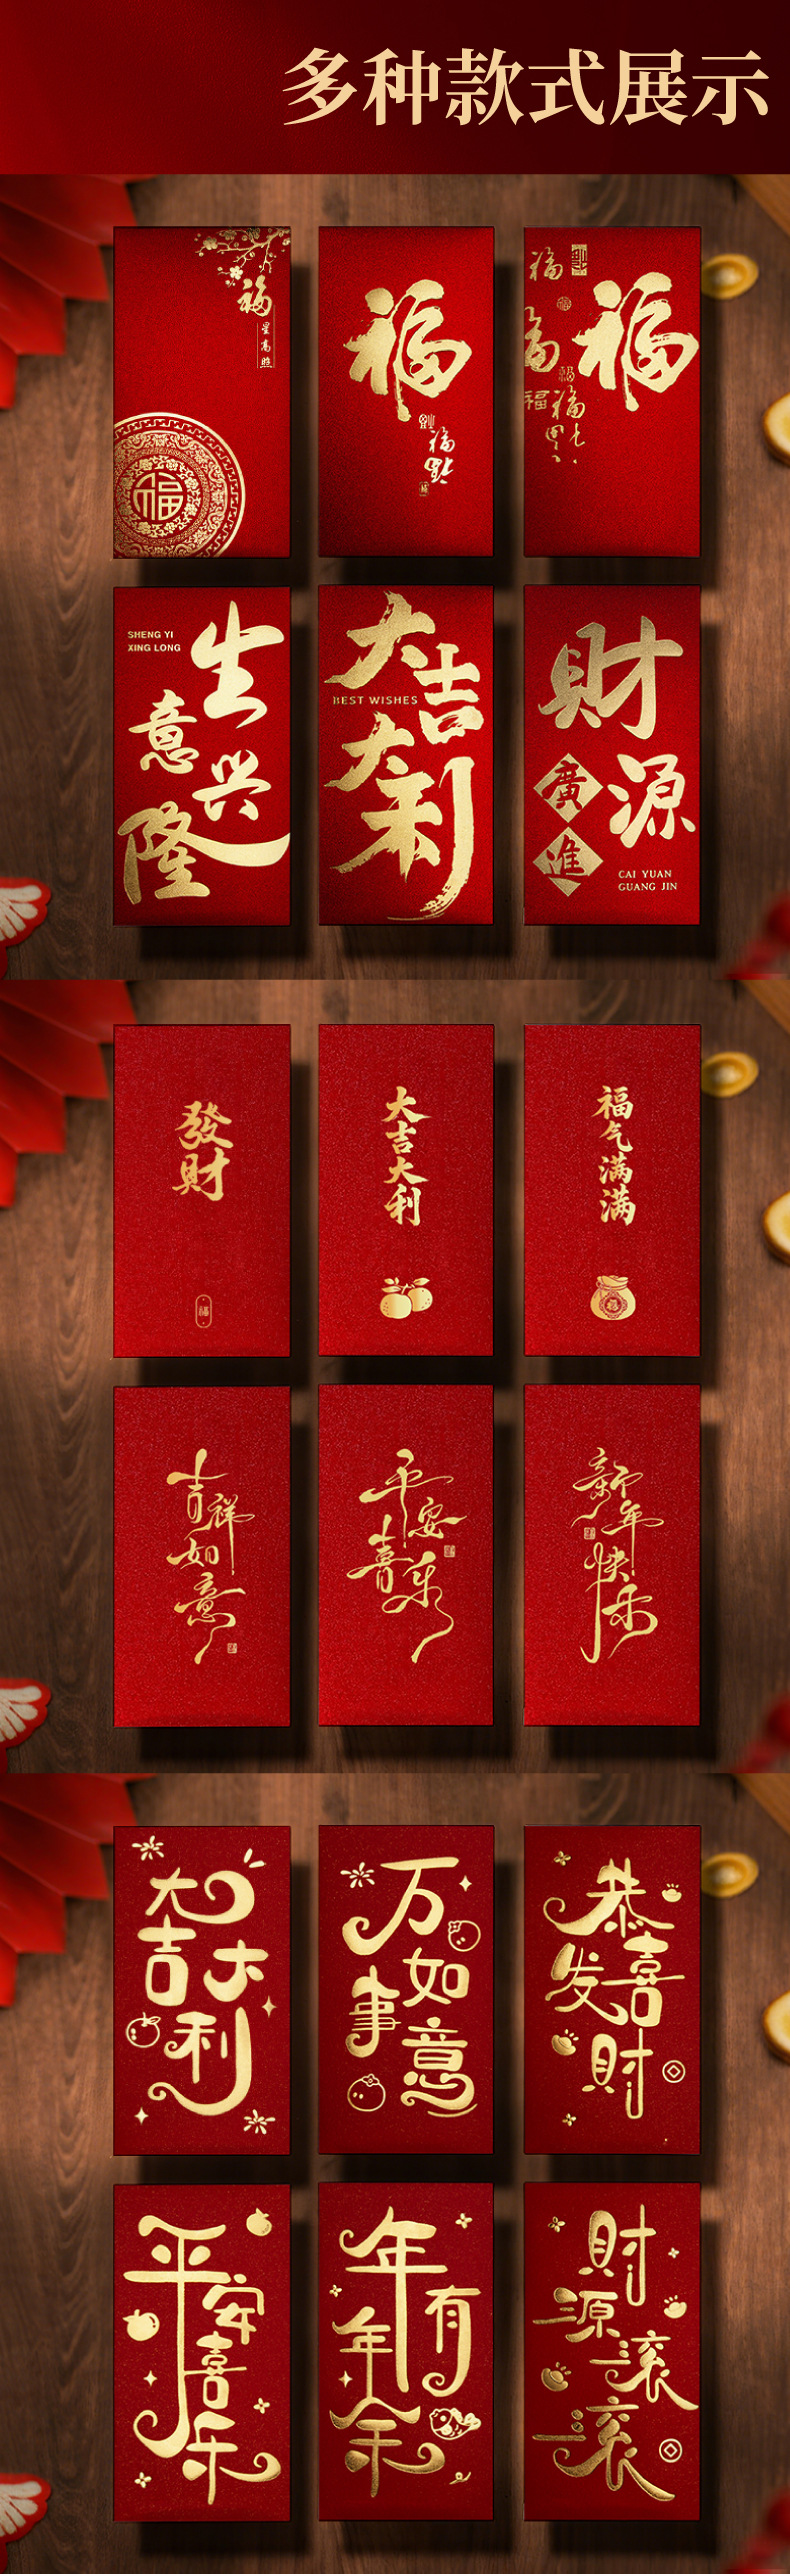 多种款式展示
福
星高照
福
福
福
福
福
福
福
福
SHENG YI
XING LONG
生
意
兴
隆
大吉
BEST WISHES
大利
財
源
廣
進
CAI YUAN
GUANG JIN
發財
福
大吉大利
福气满满
福
吉祥如意
平安喜乐
新年快乐
大吉大利
万事如意
恭喜发財
平安喜乐
年年有余
財源滚滚